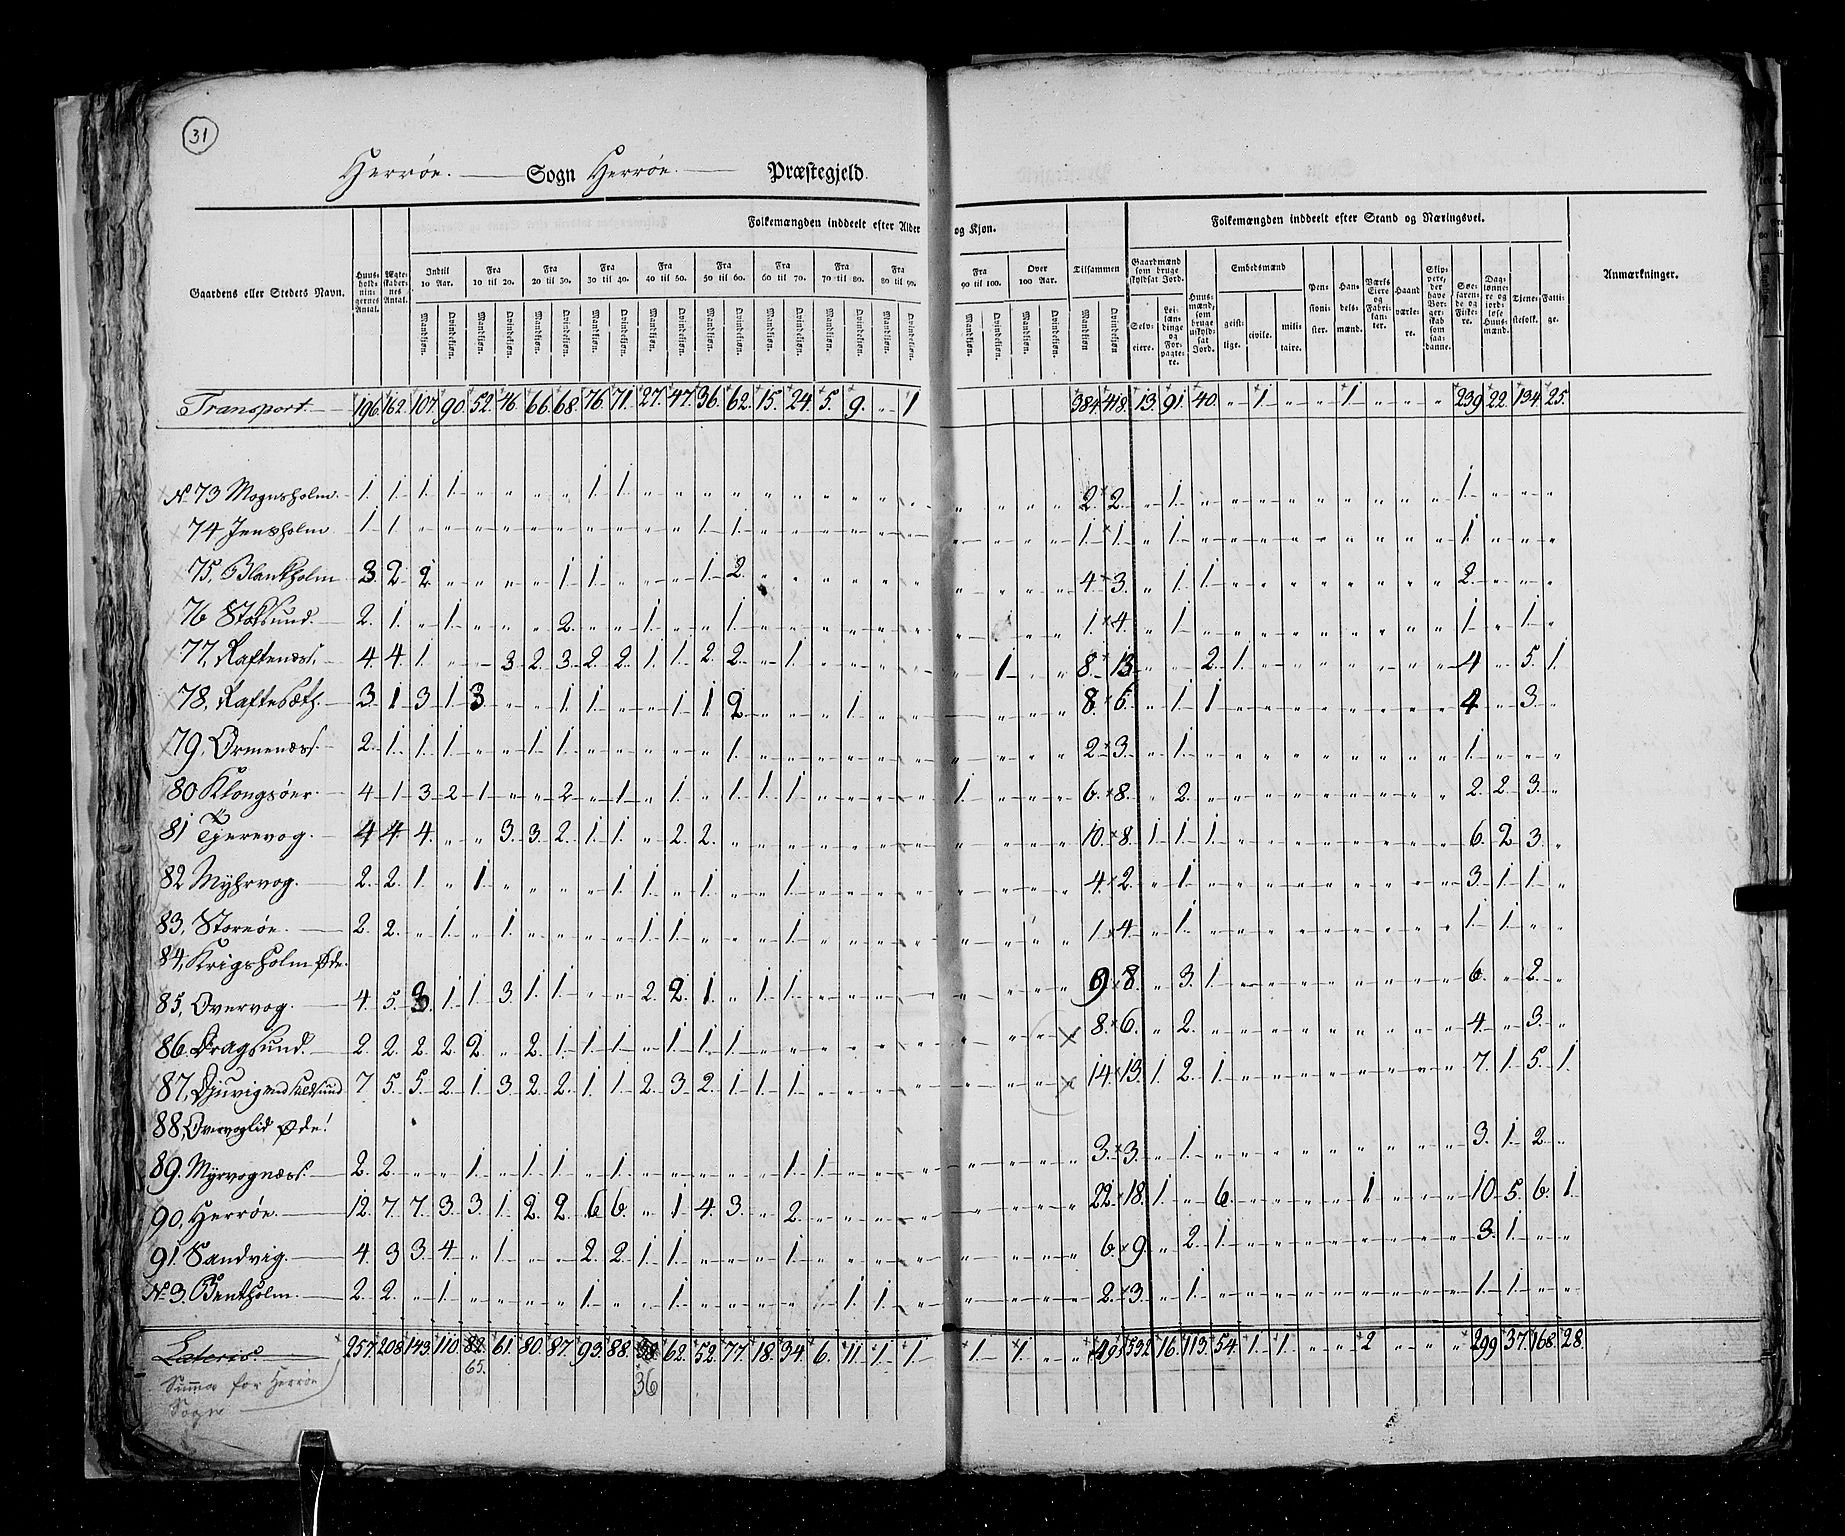 31
Herrøe. Sogn Herrøe. Præstegjeld
Folkemængden inddeelt efter Alder og Kjøn. Folkemængden inddeelt efter Stand og Næringsvei.
Gaardens eller Stedets Navn. Huus-holdnin-gernes Antal. Ægte-skaber-nes Antal. Indtil 10 Aar. Fra 10 til 20. Fra 20 til 30. Fra 30 til 40. Fra 40 til 50. Fra 50 til 60. Fra 60 til 70. Fra 70 til 80. Fra 80 til 90. Fra 90 til 100. Over 100 Aar. Tilsammen Gaardmænd som bruge skyldsat Jord. Huus-mænd, som bruge uskyld-sat Jord. Embedsmænd Pen-sioni-ster. Han-dels-mænd. Værks Eiere og Fabri-kan-ter. Haand-værke-re. Skip-pere, der have Bor-ger-skab som saa-danne. Søe-faren-de og Fiske-re. Dag-lønne-re og jord-løse Huus-mænd. Tiene-stefolk. Fatti-ge. Anmærkninger.
Mandkjøn. Qvindekjøn. Selv-eiere. Lei-læn-dinge og For-pagte-re. geist-lige. civile. mili-taire.
Transport 196. 162. 107. 90. 52. 46. 66. 68. 76. 71. 27. 47. 36. 62. 15. 24. 5. 9. „ 1 384. 418. 13. 91. 40. „ 1. „ „ 1. „ „ „ 239 22. 134. 25.
No 73 Mognsholm. 1. 1. 1. 1. „ „ „ „ 1. 1. „ „ „ „ „ „ „ „ „ „ „ „ „ „ 2. 2. „ 1. „ „ „ „ „ „ „ „ „ 1. „ „ „
74, Jensholm 1. 1. „ „ „ „ „ „ „ „ „ „ 1. 1. „ „ „ „ „ „ „ „ „ „ 1. 1. „ 1. „ „ „ „ „ „ „ „ „ 1. „ „ „
75, Blankholm 3. 2. 2. „ „ „ „ 1. 1. „ „ „ 1. 2. „ „ „ „ „ „ „ „ „ „ 4. 3. „ 1. 1. „ „ „ „ „ „ „ „ 2. „ „ „
76 Stoksund. 2. 1. „ 1. „ „ „ 2. „ „ 1. „ „ 1. „ „ „ „ „ „ „ „ „ „ 1. 4. „ 1. „ „ „ „ „ „ „ „ „ 1. „ 1. „
77, Raftenæss. 4. 4. 1. „ „ 3. 2. 3. 2. 2. 1. 1. 2. 2. „ 1. „ „ „ „ „ 1. „ „ 8. 13. „ „ 2. 1. „ „ „ „ „ „ „ 4. „ 5. 1.
78, Raftesæth. 3. 1 3. 1. 3. „ „ 1. 1. „ „ 1. 1. 2. „ „ „ 1. „ „ „ „ „ „ 8. 6. „ 1. 1. „ „ „ „ „ „ „ „ 4. „ 3. „
79, Ormenæss. 2. 1. 1. 1. „ „ 1. 1. „ „ „ „ „ 1. „ „ „ „ „ „ „ „ „ „ 2. 3. „ 1. „ „ „ „ „ „ „ „ „ 1. „ „ „
80 Klongsøer. 4. 1. 3. 2. 1. „ „ 2. „ 1. „ 1. „ 1. 1. 1. „ „ „ „ 1. „ „ „ 6. 8. „ 2. „ „ „ „ „ „ „ „ „ 2. 2. 3. „
81 Tjerevog. 4. 4. 4. „ „ 3. 3. 2. 1. 1. „ 2. 2. „ „ „ „ „ „ „ „ „ „ „ 10. 8. 1. 1. 1. „ „ „ „ „ „ „ „ 6. 2. 3. „
82 Myhrvog. 2. 2. 1. „ 1. „ „ „ „ 1. 1. „ 1. „ „ 1. „ „ „ „ „ „ „ „ 4. 2. „ 1. „ „ „ „ „ „ „ „ „ 3. 1. 1. „
83, Storeøe. 2. 2. „ 1. „ 1. „ „ „ „ 1. 1. „ „ „ 1. „ „ „ „ „ „ „ „ 1. 4. „ 1. „ „ „ „ „ „ „ „ „ 1. 1. „ „
84, Krigsholm Øde.
85, Overvog. 4. 5. 3. 1. 1. 3. 1. 1. „ „ 2. 2. 1. „ 1. 1. „ „ „ „ „ „ „ „ 9. 8. „ 3. 1. „ „ „ „ „ „ „ „ 6. „ 2. „
86. Dragsund. 2. 2. 2. 2. 2. „ 2. 1. 1. 1. „ 1. 1. 1. „ „ „ „ „ „ „ „ „ „ 8. 6. „ 2. „ „ „ „ „ „ „ „ „ 4. „ 3. „
87, Djuvig med Kildsund 7. 5. 5. 2. 1. 3. 2. 2. 1. 1. 2. 3. 2. 1. 1. 1. „ „ „ „ „ „ „ „ 14. 13. 1. 2. 1. „ „ „ „ „ „ „ „ 7. 1. 5. 1.
88, Overvoglid Øde!
89. Myrvognæss. 2. 2. „ „ 1. „ 1. 1. „ 1. „ „ „ „ „ 1. 1. „ „ „ „ „ „ „ 3. 3. „ 1. „ „ „ „ „ „ „ „ „ 3. 1. 2. „
90, Herrøe. 12. 7. 7. 3. 3. 1. 2. 2. 6. 6. „ 1. 4. 3. „ 2. „ „ „ „ „ „ „ „ 22. 18. 1. „ 6. „ „ „ „ „ 1. „ „ 10. 5. 6. 1.
91. Sandvig. 4. 3. 3. 4. „ 1. „ „ 2. 2. 1. 1. „ „ „ 1. „ „ „ „ „ „ „ „ 6. 9. „ 2. 1. „ „ „ „ „ „ „ „ 3. 1. „ „
No 3. Bentholm. 2. 2. „ 1. „ „ „ „ 1. „ „ 1. „ „ „ „ „ 1. 1. „ „ „ „ „ 2. 3. „ 1. „ „ „ „ „ „ „ „ „ 1. 1. „ „
Lateris. 257. 208. 143. 110. 82. 61. 80. 87. 93. 88. 62. 52. 77. 18. 34. 6. 11. 1. 1. 1. 1. „ „ 495. 532. 16. 113. 54. 1. 1. „ „ 2 „ „ „ 299 37. 168. 28.
65. 36
Summa for Herrøe
Sogn